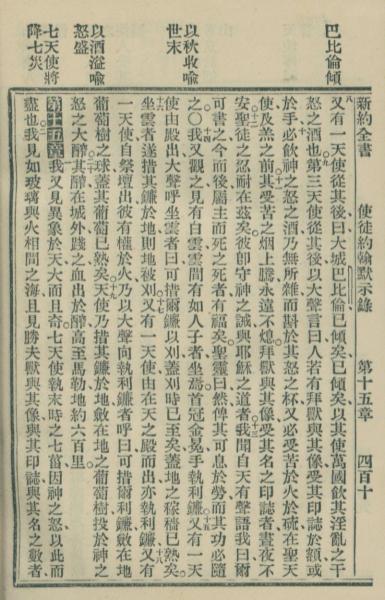 新約全書 使徒約翰默示錄 第十五章 四百十
巴比倫傾
以秋收喻
世末
以酒溢喻
怒盛
七天使將
降七災
又有一天使從其後曰大城巴比倫已傾矣已傾矣以其使萬國飲其淫亂之干
怒之酒也第三天使從其後以大聲言曰人若有拜獸與其像受其印誌於額或
於手必飲神之怒之酒乃無所雜而斟於其怒之杯又必受苦於火於硫在聖天
使及羔之前其受苦之烟上騰永遠不熄拜獸與其像受其名之印誌者晝夜不
安聖徒之忍耐在茲矣彼卽守神之誡與耶穌之道者我聞自天有聲語我曰爾
可書之今而後屬主而死之死者有福矣聖靈曰然俾其可息於勞而其功必隨
之〇我又觀之見有白雲雲間有如人子者坐焉首冠金冕手執利鐮又有一天
使由殿出大聲呼坐雲者曰可措爾鐮以刈蓋刈時已至矣蓋地之稼穡已熟矣
坐雲者遂措其鐮於地則地被刈又有一天使由在天之殿而出亦執利鐮又有
一天使自祭壇出彼有權於火乃以大聲向執利鐮者呼曰可措爾利鐮斂在地
葡萄樹之球蓋其葡萄已熟矣天使乃措其鐮於地斂在地之葡萄樹投於神之
怒之大醡其醡在城外踐之血出於醡高至馬勒地約六百里
第十五章我又見異象於天大而且奇七天使執末時之七菑因神之怒以此而
盡也我見如玻璃與火相間之海且見勝夫獸與其像與其印誌與其名之數者